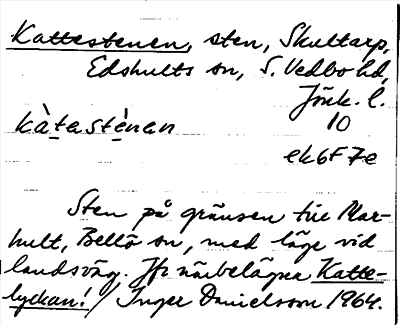 Kattestenen, sten, Skultarp,
Edshults sn, S. Vedbo hd,
Jönk. l.
kàtastènan 10
ek6F7e
Sten på gränsen till Mar-
hult, Bellö sn, med läge vid
landsväg. Jfr närbelägna Katte-
lyckan! / Inger Danielsson 1964.